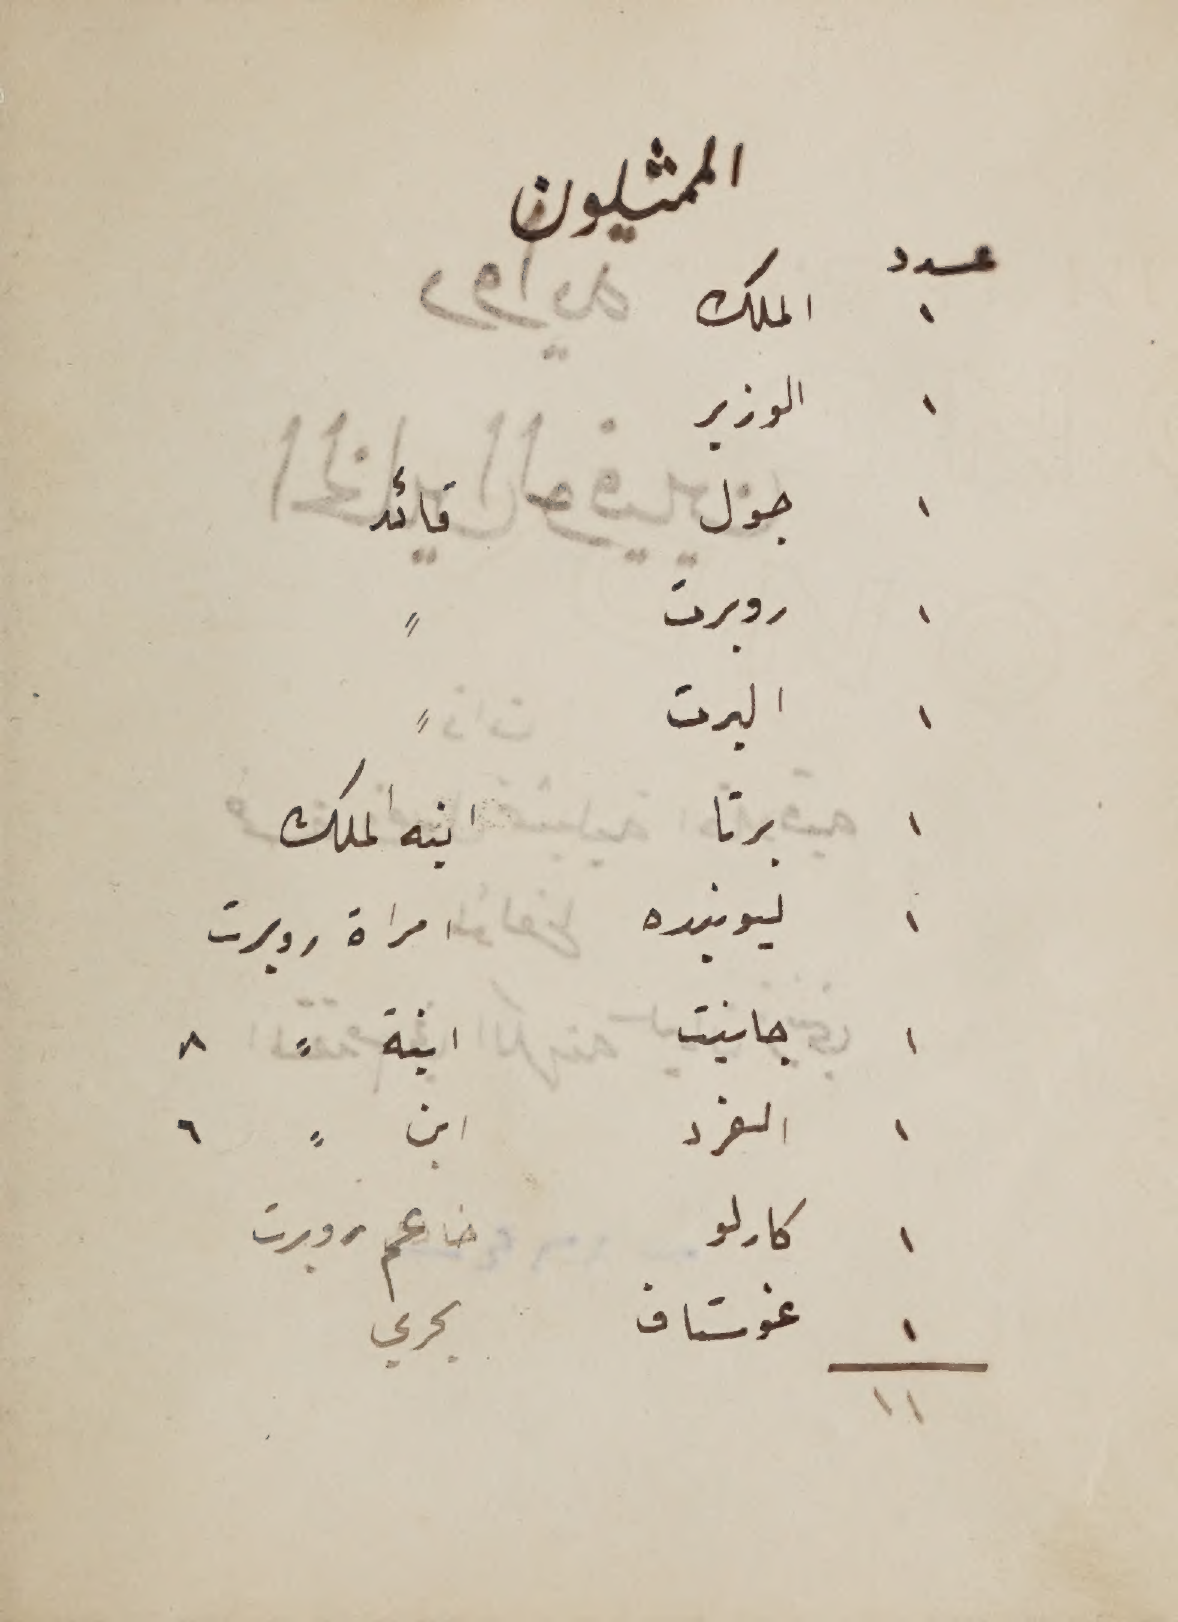 الممثليون
عدد
١ الملك
١ الوزير
١ جول قائد
١ روبرت 〃
١ البرت 〃
١ برتا ابنه الملك
١ ليوبنده امراة روبرت
١ جانيت ابنة 〃 ٨
١ الفرد ابن 〃 ٦
١ كارلو خادم روبرت
١ غوستاف بحري
١١